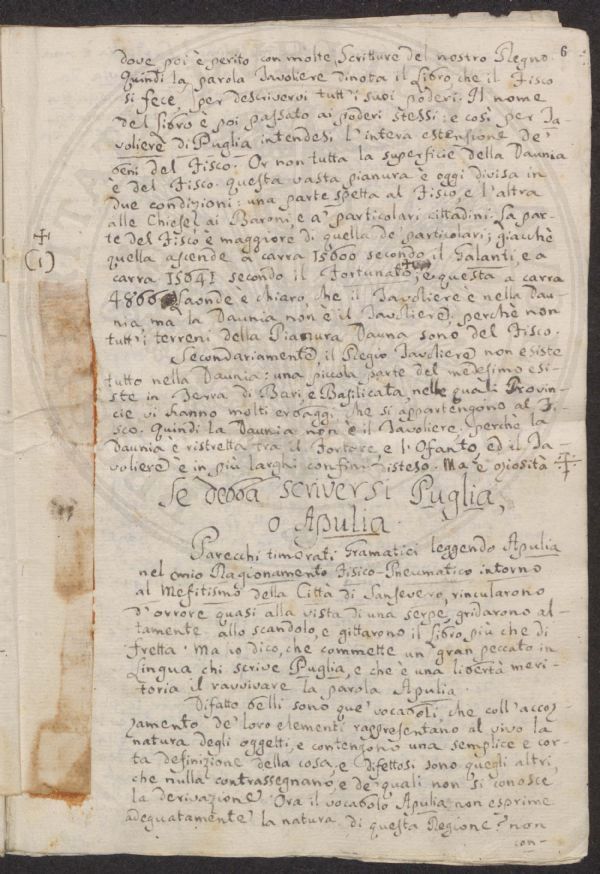 6
dove poi è perito con molte Scritture del nostro Regno.
Quindi la parola Tavoliere dinota il Libro che il Fisco
si fece, per descrivervi tutt'i suoi poderi. Il nome
del libro è poi passato ai poderi stessi: e così per Ta-
voliere di Puglia intendesi l'intera estensione de'
beni del Fisco. Or non tutta la superficie della Daunia
è del Fisco. Questa vasta pianura è oggi divisa in
due condizioni: una parte spetta al Fisco, e l'altra
alle Chiese, ai Baroni, e a' particolari cittadini. La par-
te del Fisco è maggiore di quella de' particolari; giacchè
quella ascende a carra 15600 secondo il Galanti, e a
(1)
carra 15641 secondo il Fortunato; e questa a carra
4866. Laonde è chiaro, che il Tavoliere è nella Dau-
nia, ma la Daunia non è il Tavoliere, perchè non
tutt'i terreni della Pianura Dauna sono del Fisco.
Secondariamente, il Regio Tavoliere non esiste
tutto nella Daunia: una piccola parte del medesimo esi-
ste in Terra di Bari, e Basilicata, nelle quali Provin-
cie vi hanno molti erbaggi, che si appartengono al Fi-
sco. Quindi la Daunia non è il Tavoliere, perchè la
Daunia è ristretta tra il Fortore, e l'Ofanto, ed il Ta-
voliere è in più larghi confini disteso. Ma è oziosità
Se debba scriversi Puglia,
o Apulia.
Parecchi timorati Gramatici leggendo Apulia
nel mio Ragionamento Fisico-Pneumatico intorno
al Mefitismo della Città di Sansevero, rincularono
d'orrore quasi alla vista di una serpe, gridarono al-
tamente allo scandolo, e gittarono il Libro, più che di
fretta. Ma io dico, che commette un gran peccato in
Lingua chi scrive Puglia, e che è una libertà meri-
toria il ravvivare la parola Apulia.
Difatto belli sono que' vocaboli, che coll'accoz-
zamento de' loro elementi rappresentano al vivo la
natura degli oggetti, e contengono una semplice e cor-
ta definizione della cosa, e difettosi sono quegli altri,
che nulla contrassegnano, e de' quali non si conosce
la derivazione. Ora il vocabolo Apulia non esprime
adequatamente la natura di questa Regione? non
con-